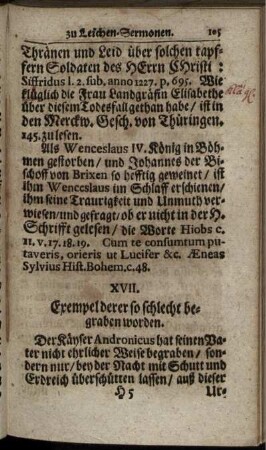 zu Leichen-Sermonen. 105
Thränen und Leid über solchen tapf-
fern Soldaten des HErrn CHristi:
Siffridus l. 2. sub. anno 1227. p. 695. Wie
kläglich die Frau Landgräffin Elisabethe
über diesem Todesfall gethan habe / ist in
den Merckw. Gesch. von Thüringen.
145. zu lesen.
Als Wenceslaus IV. König in Böh-
men gestorben / und Johannes der Bi-
schoff von Brixen so hefftig geweinet / ist
ihm Wenceslaus im Schlaff erschienen /
ihm seine Traurigkeit und Unmuth ver-
wiesen / und gefragt / ob er nicht in der H.
Schrifft gelesen / die Worte Hiobs c.
11. v. 17. 18. 19. Cum te consumtum pu-
taveris, orieris ut Lucifer &c. Æneas
Sylvius Hist. Bohem. c. 48.
XVII.
Exempel derer so schlecht be-
graben worden.
Der Käyser Andronicus hat seinen Va-
ter nicht ehrlicher Weise begraben / son-
dern nur / bey der Nacht mit Schutt und
Erdreich überschütten lassen / auß dieser
H 5 Ur-